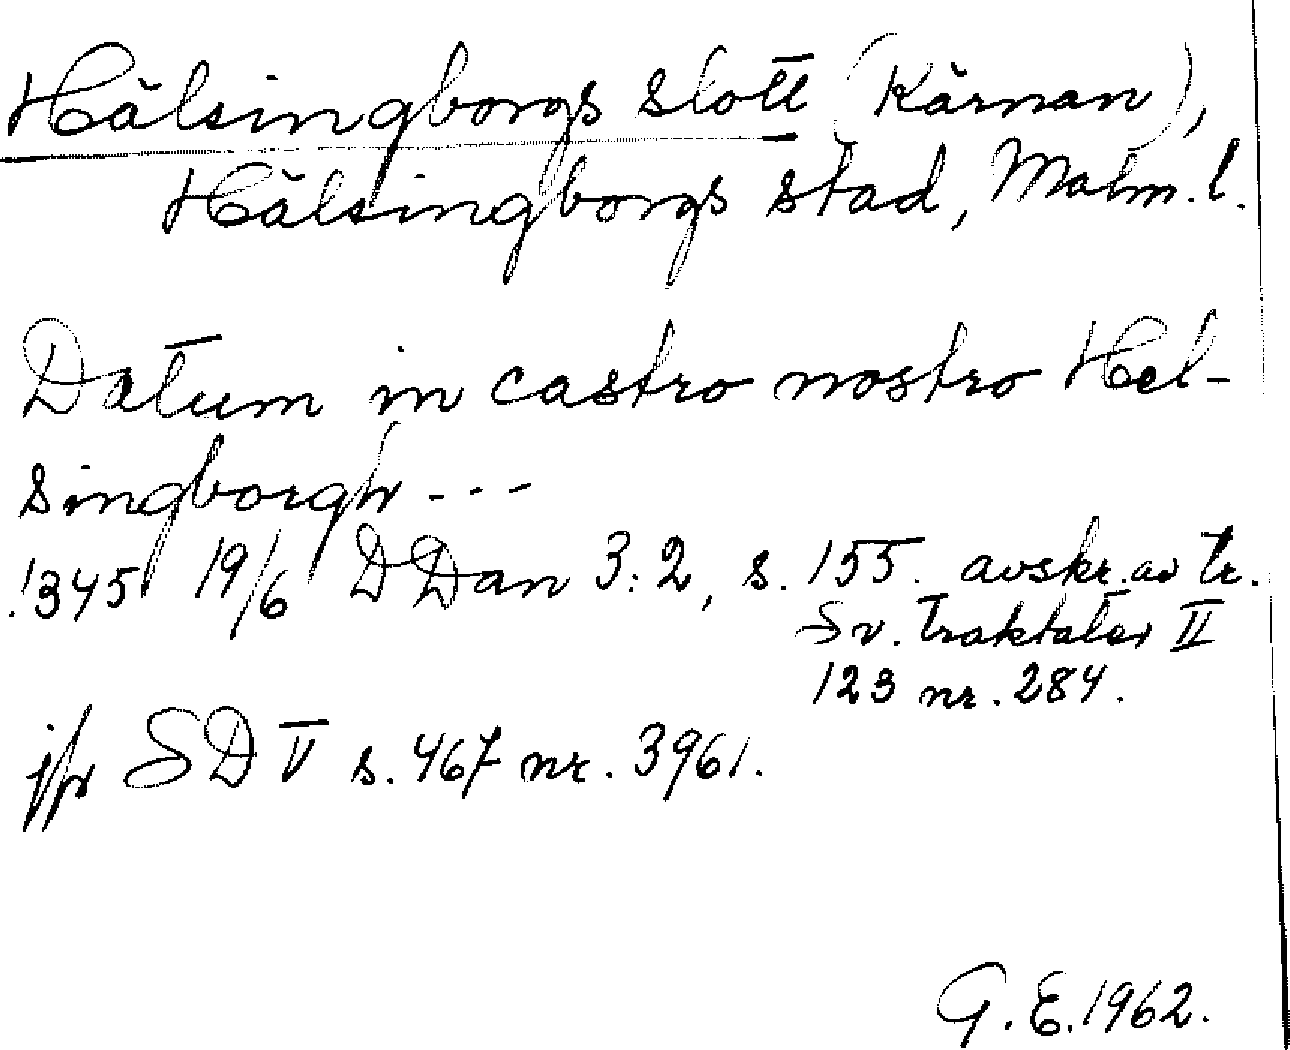 Hälsingborgs slott (Kärnan),
Hälsingborgs stad, Malm. l.
Datum in castro nostro Hel-
singborgh ---
1345 19/6 DDan 3:2, s. 155. avskr. av tr.
Sv. Traktater II
123 nr. 284.
jfr SD V s. 467 nr. 3961.
G. E. 1962.